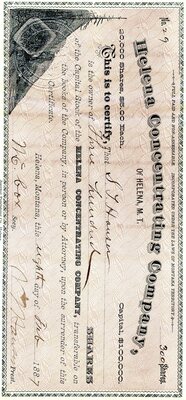 No. 29
300 Shares
CAPITAL PAID AND NON-ASSESSABLE. INCORPORATED UNDER THE LAWS OF MONTANA TERRITORY
Helena Concentrating Company,
OF HELENA, M. T.
20,000 Shares, $5.00 Each.
Capital, $100,000.
This is to certify, That S. T. Hauser
is the owner of Three Hundred SHARES
of the Capital Stock of the HELENA CONCENTRATING COMPANY, transferable on
the books of the Company, in person or by Attorney, upon the surrender of this
Certificate.
Helena, Montana, this eighth day of Feb 1887
Secy.
Prest.